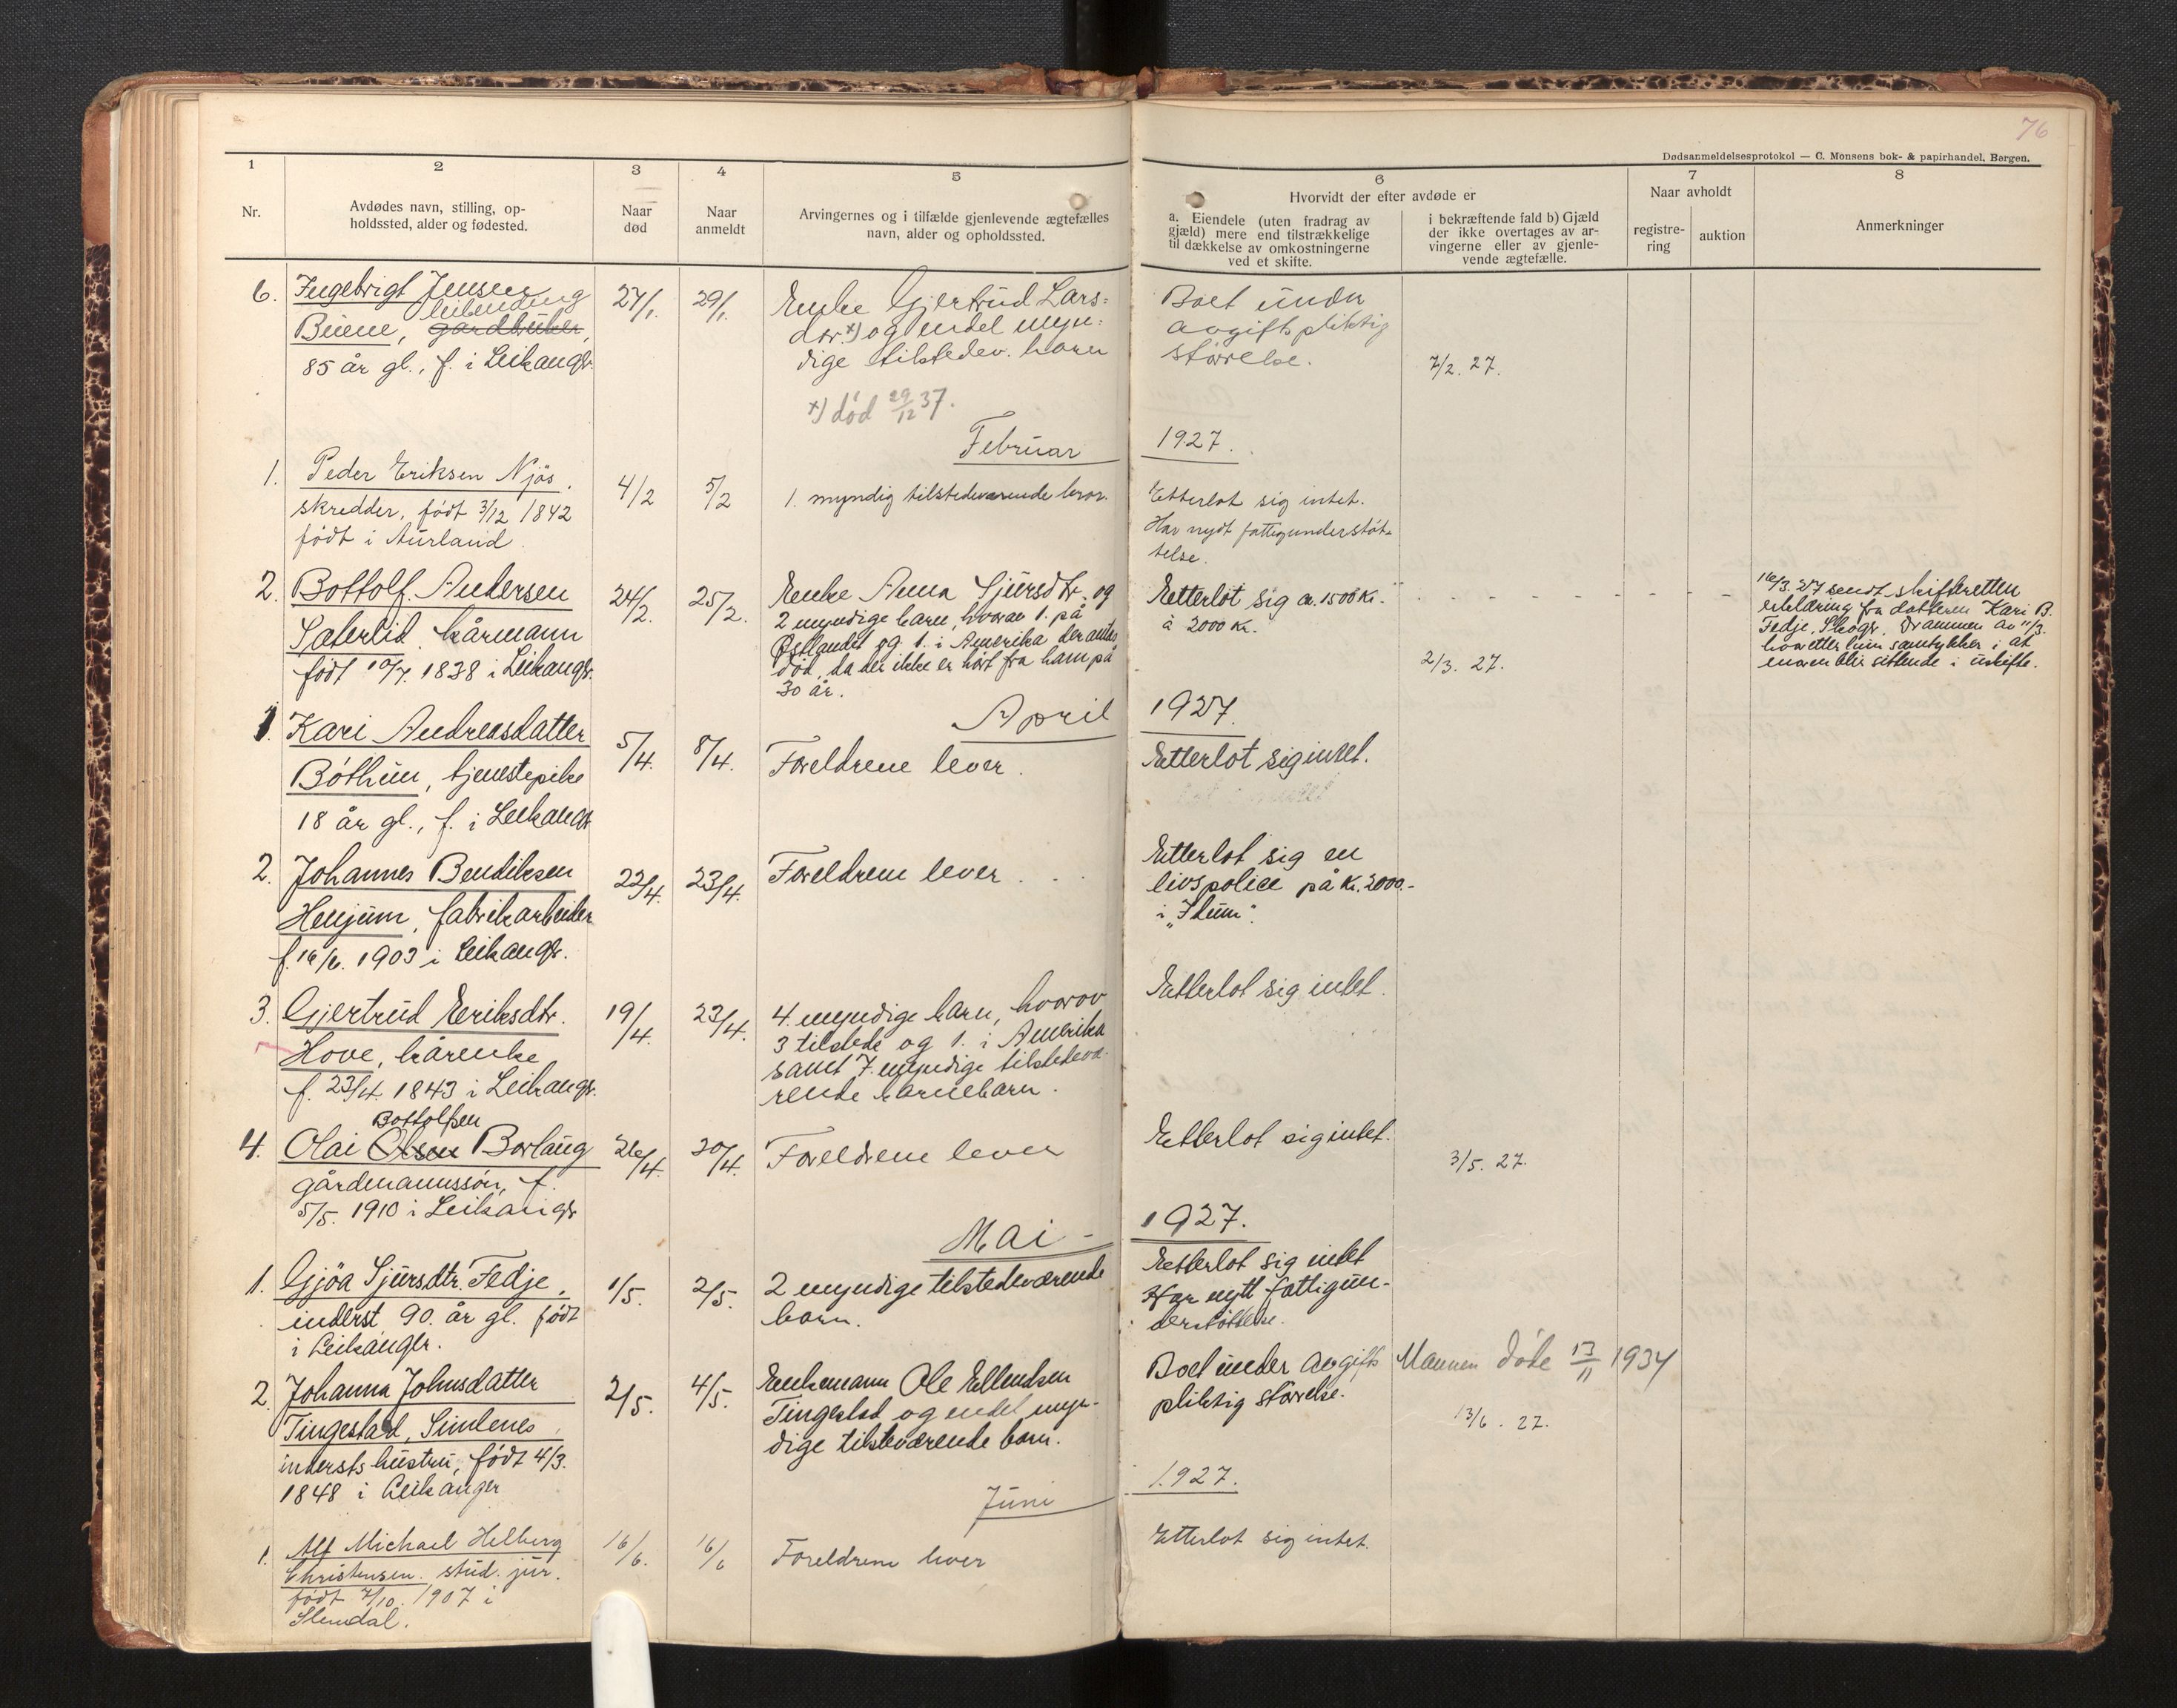 76
Dødsanmeldelsesprotokol — C. Monsens bok- & papirhandel, Bergen.
1
2
3
4
5
6
7
8
Nr.
Avdødes navn, stilling, op-
holdssted, alder og fødested.
Naar
død
Naar
anmeldt
Arvingernes og i tilfælde gjenlevende ægtefælles
navn, alder og opholdssted.
Hvorvidt der efter avdøde er
a. Eiendele (uten fradrag av
gjæld) mere end tilstrækkelige
til dækkelse av omkostningerne
ved et skifte.
i bekræftende fald b) Gjæld
der ikke overtages av ar-
vingerne eller av gjenle-
vende ægtefælle.
Naar avholdt
registre-
ring
auktion
Anmerkninger
6. Ingebrigt Jensen
leilending
Biene, gardbruker,
85 år gl., f. i Leikangr.
27/1.
29/1.
Enke Gjertrud Lars=
dtr. x) og endel myn=
dige tilstedev. barn
x) død 29/12 37.
Boet under
avgiftspliktig
størrelse.
7/2. 27.
Februar 1927.
1. Peder Eriksen Njøs.
skredder, født 3/12 1842
født i Aurland.
4/2
5/2
1. myndig tilstedeværende bror.
Etterlot sig intet.
Har nydt fattigunderstøt-
telse.
2. Bottolf Andersen
Sæterlid kårmann
født 10/7. 1838 i Leikangr.
24/2.
25/2.
Enke Anna Sjursdtr. og
2 myndige barn, hvorav 1. på
Østlandet og 1. i Amerika der antas
død, da der ikke er hørt fra ham på
30 år.
Etterlot sig ca. 1500 Kr.
à 2000 Kr.
2/3. 27.
16/3. 27 sendt skifteretten
erklæring fra datteren Kari B.
Fedje, Skogr. Drammen av 11/3.
hvoretter hun samtykker i at
enken blir sittende i uskifte.
April 1927.
1. Kari Andreasdatter
Bøthun, tjenestepike
18 år gl., f. i Leikangr
5/4.
8/4.
Foreldrene lever.
Etterlot sig intet.
2. Johannes Bendiksen
Henjum, fabrikarbeider
f. 16/6. 1903 i Leikangr.
22/4.
23/4.
Foreldrene lever . . .
Etterlot sig en
livspolice på Kr. 2000.-
i „Idun“.
3. Gjertrud Eeriksdtr.
Hove, kårenke
f. 23/4. 1843 i Leikangr.
19/4.
23/4.
4. myndige barn, hvorav
3 tilstede og 1. i Amerika
samt 7. myndige tilstedevæ-
rende barnebarn.
Etterlot sig intet.
Bottolfsen
4. Olai Olsen Borlaug
gårdmannssøn, f.
5/5. 1910 i Leikangr
26/4.
30/4.
Foreldrene lever
Etterlot sig intet.
3/5. 27.
Mai - 1927.
1. Gjøa Sjursdtr. Fedje,
inderst 90. år gl. født
i Leikangr.
1/5.
2/5.
2 myndige tilstedeværende
barn.
Etterlot sig intet
Har nytt fattigun-
derstøttelse.
2. Johanna Johnsdatter
Tingestad, Simlenes
inderstshustru, født 4/3.
1848 i Leikanger
2/5.
4/5.
Enkemann Ole Ellendsen
Tingestad og endel myn-
dige tilsteværende barn.
Boet under avgifts
pliktig størrelse.
Mannen døde 13/11 1934
13/6. 27.
Juni 1927.
1. Alf Michael Helberg
Christensen. stud. jur.
født 7/10. 1907 i
16/6.
16/6
Foreldrene lever
Etterlot sig intet.